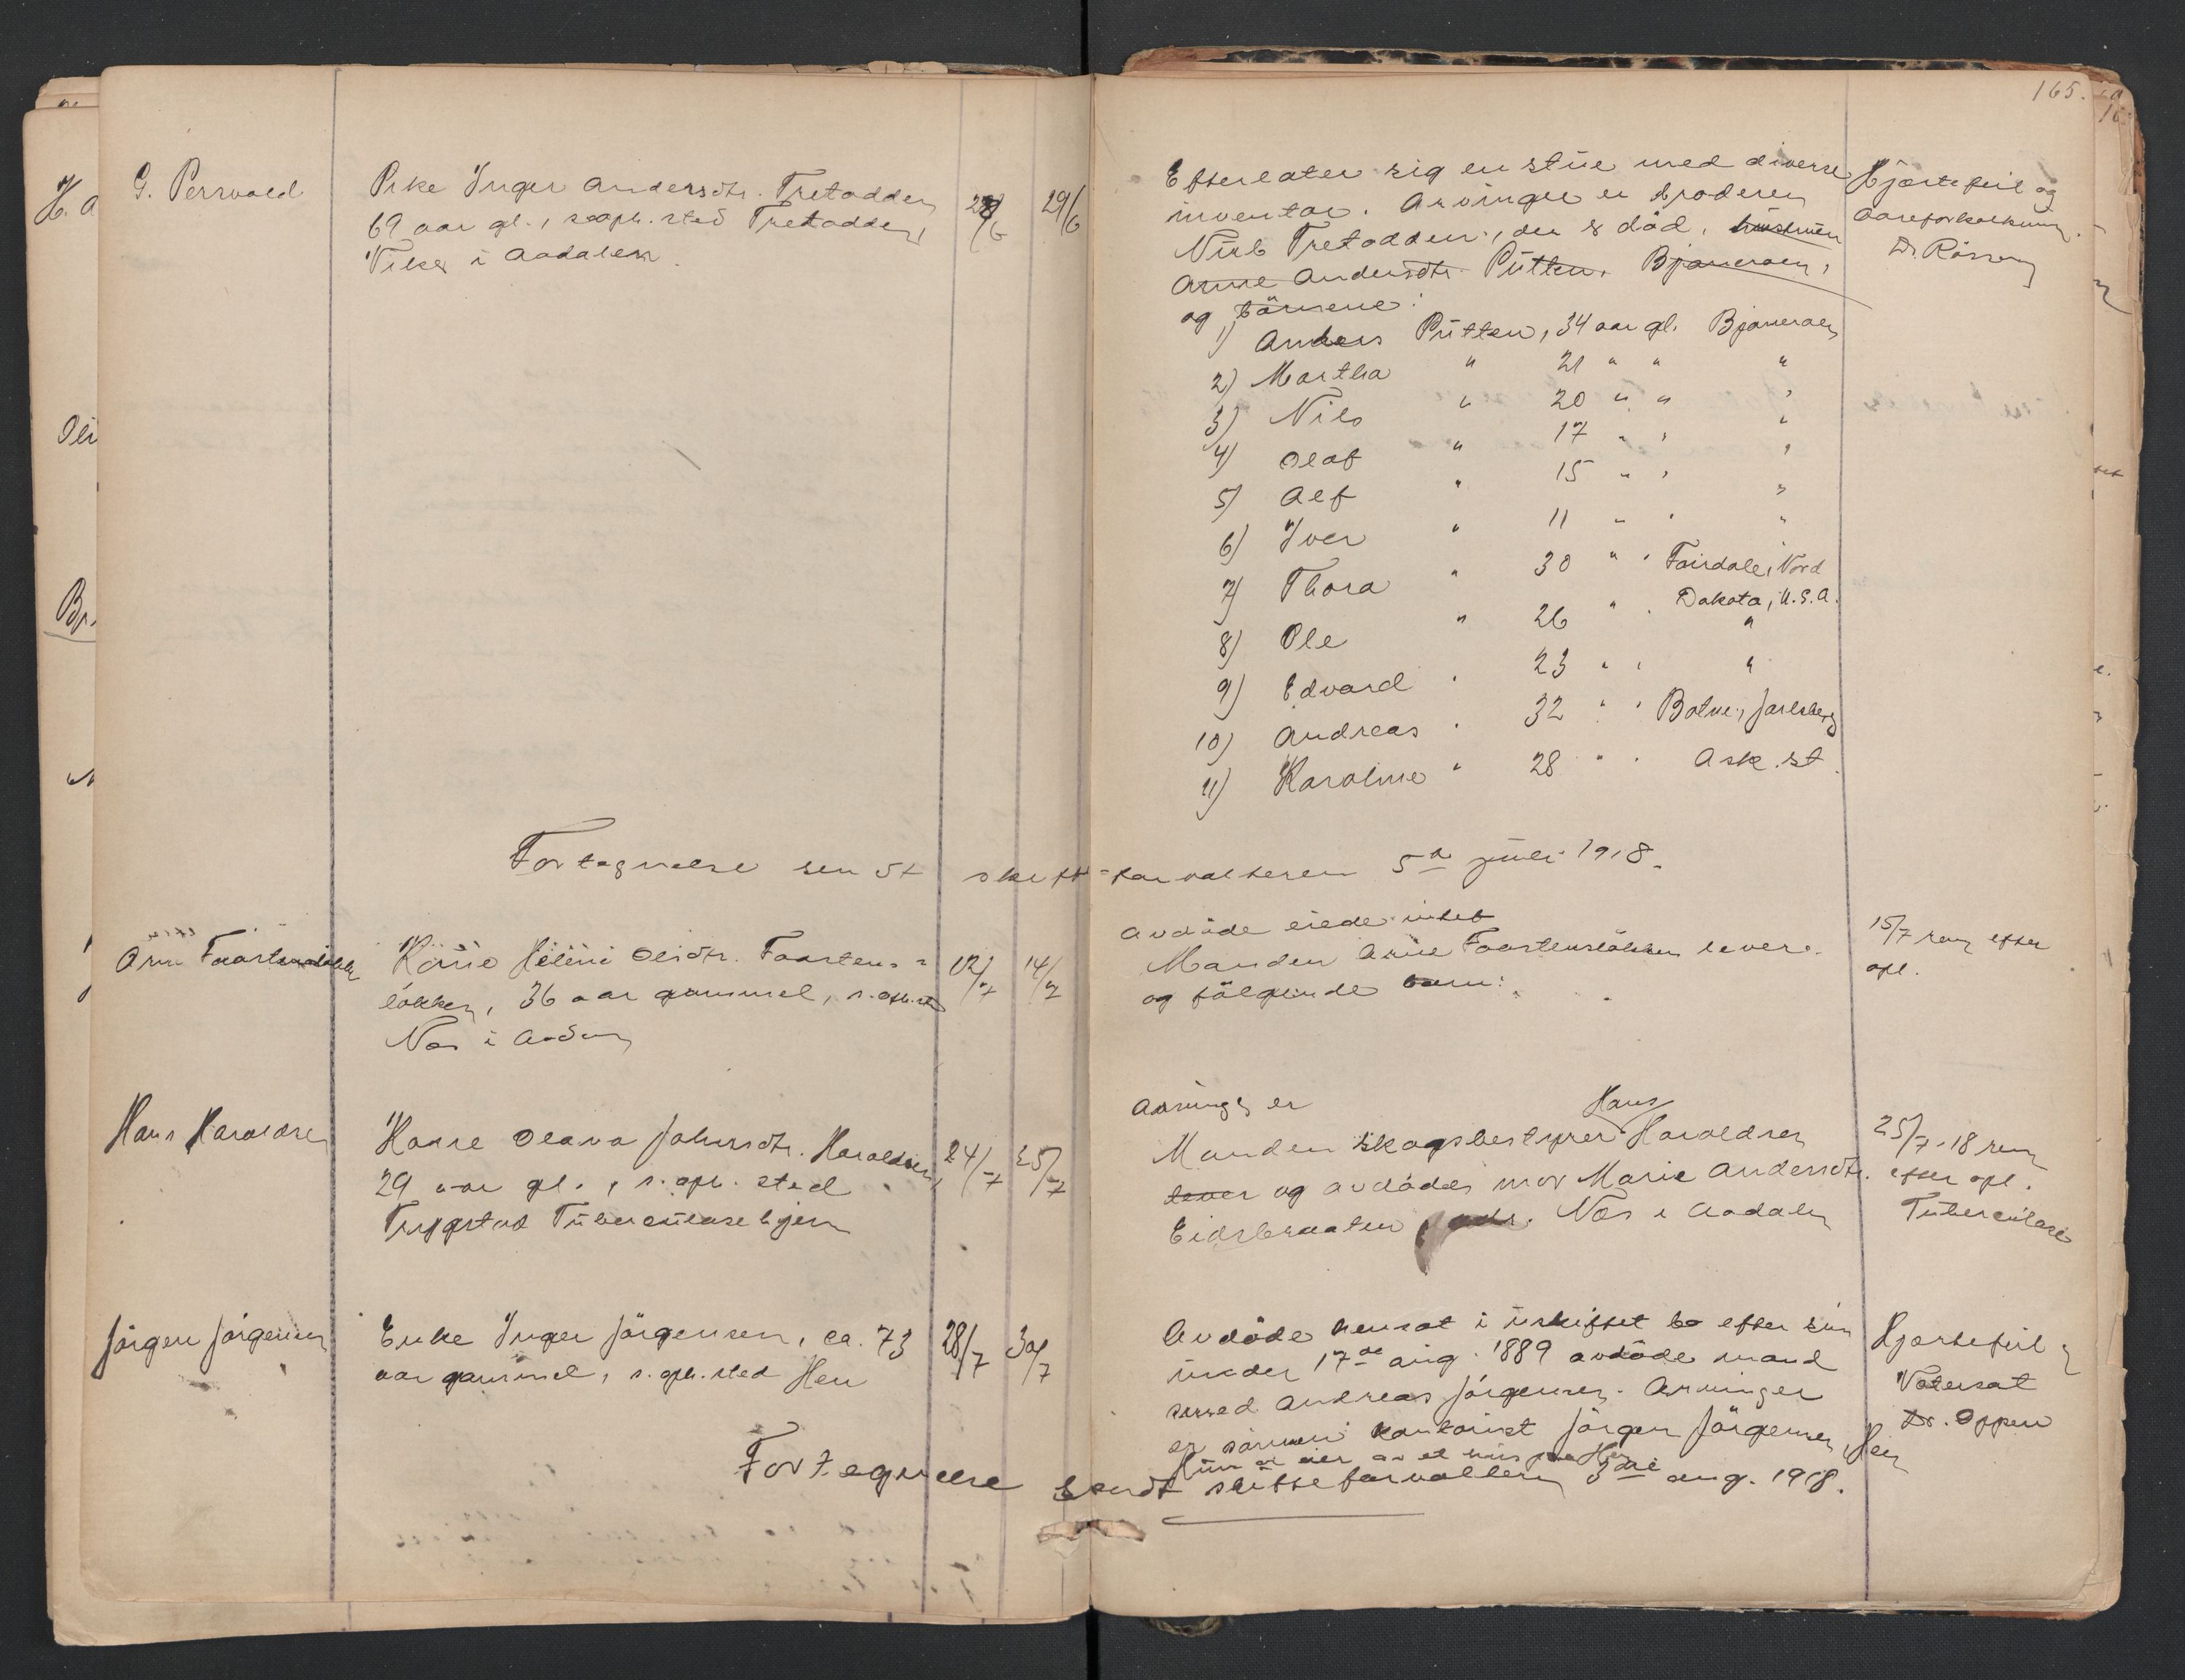 165.
G. Perwold
Pike Inger Andersdtr. Tretodden
69 aar gl., s. oph. sted Tretodden,
Viker i Aadalen.
28/6 29/6
Efterlater sig en stue med diverse
inventar. Arvinger er broderen
Nils Tretodden, der er död, hustruen
Anne Andersdtr. Pütten, Bjoneroen,
og börnene:
1) Anders Pütten, 34 aar gl. Bjoneroen
2) Martha " 21 " " "
3) Nils " 20 " " "
4) Olaf " 17 " " "
5) Alf " 15 " " "
6) Iver " 11 " " "
7) Thora " 30 " " Fairdale, Nord
Dakota, U.S.A.
8) Ole " 26 " " "
9) Edvard " 23 " " "
10) Andreas " 32 " " Botne, Jarlsberg
11) Karoline " 28 " " Ask st.
Hjertefeil og
Aareforkalkning.
Dr.
Fortegnelse sendt skifteforvalteren 5te juli 1918.
Arne
Kone Helene Olsdtr. Faastens-
lökken, 36 aar gammel, s. oph. sted
Nes i Aadalen
12/7 14/7
Avdöde eiede intet
Manden Arne Faastenslökken lever.
og fölgende barn:
15/7 efter
opl.
Hans Haraldsen
Kone Olava Johnsdtr. Haraldsen,
29 aar gl., s. oph. sted
Tryggstad Tuberculosehjem
24/7 25/7
Arvinger er
Hans
Manden skogsbestyrer Haraldsen
lever og avdödes mor Marie Andersdtr.
Eidsbraaten Nes i Aadalen
25/7-18
efter opl.
Tuberculose
Jörgen Jörgensen
Enke Inger Jörgensen, ca. 73
aar gammel, s. oph. sted Hen
28/7 30/7
Avdöde hensat i uskiftet bo efter sin
under 17de aug. 1889 avdöde mand
Andreas Jörgensen. Arvinger
er sönnen kontorist Jörgen Jörgensen, Hen
Hun er eier av et hus paa Hen
Hjertefeil og
Vatersot
Dr. Oppen
Fortegnelse sendt skifteforvalteren 3die aug. 1918.